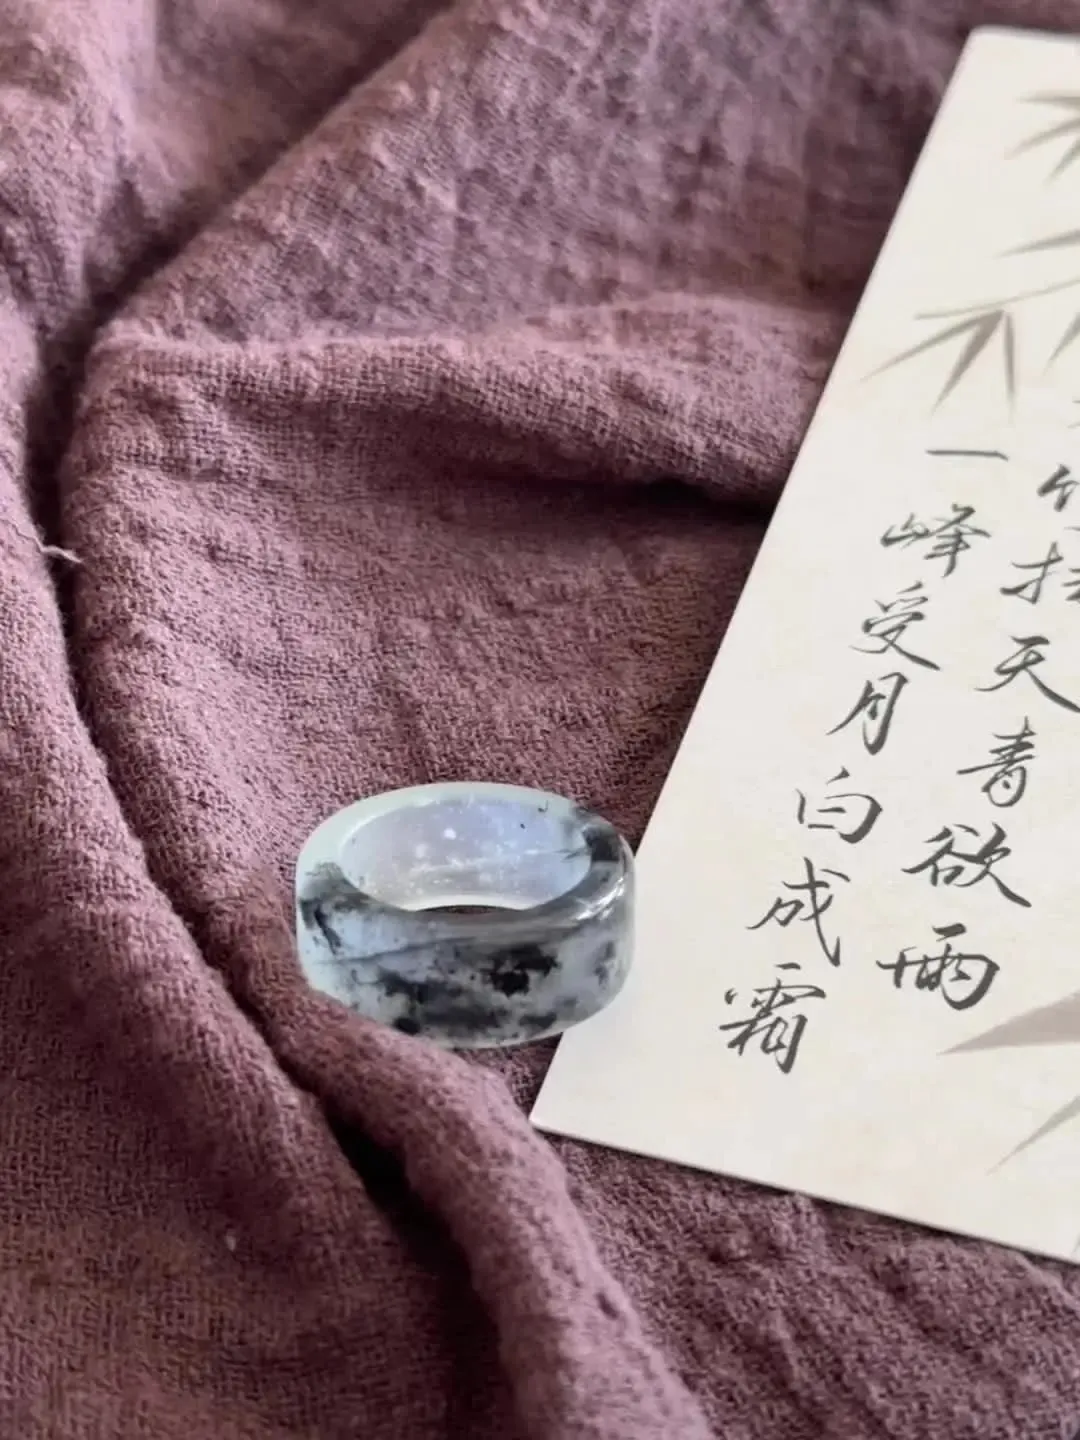 天青欲雨
一峰受月白成霜